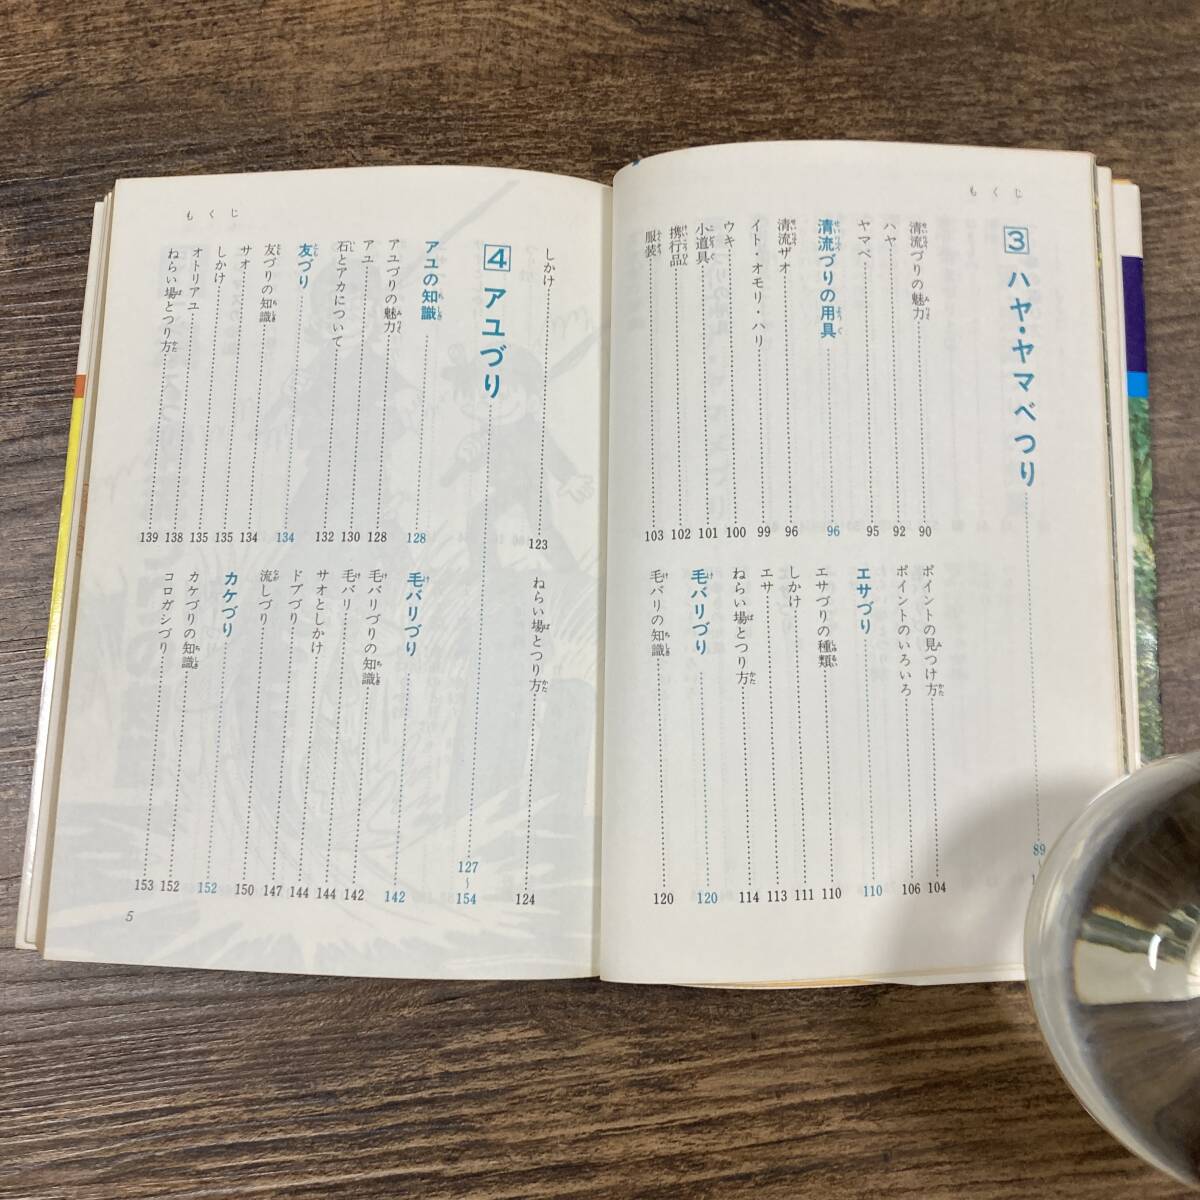 もくじ
3 ハヤ・ヤマベつり 89〜
清流づりの魅力 90
ハヤ 92
ヤマベ 95
清流づりの用具 96
清流ザオ 96
イト・オモリ・ハリ 99
ウキ 100
小道具 101
携行品 102
服装 103
ポイントの見つけ方 104
ポイントのいろいろ 106
エサづり 110
エサづりの種類 110
しかけ 111
エサ 113
ねらい場とつり方 114
毛バリづり 120
毛バリの知識 120
もくじ
しかけ 123
ねらい場とつり方 124
4 アユづり 127〜154
アユの知識 128
アユづりの魅力 128
アユ 130
石とアカについて 132
友づり 134
友づりの知識 134
サオ 135
しかけ 135
オトリアユ 138
ねらい場とつり方 139
毛バリづり 142
毛バリづりの知識 142
毛バリ 144
サオとしかけ 144
ドブづり 147
流しづり 150
カケづり 152
カケづりの知識 152
コロガシづり 153
5